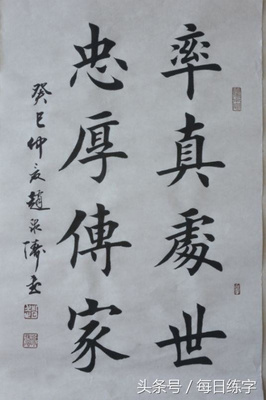 率真處世
忠厚傳家
癸巳仲夏趙
头条号／每日练字